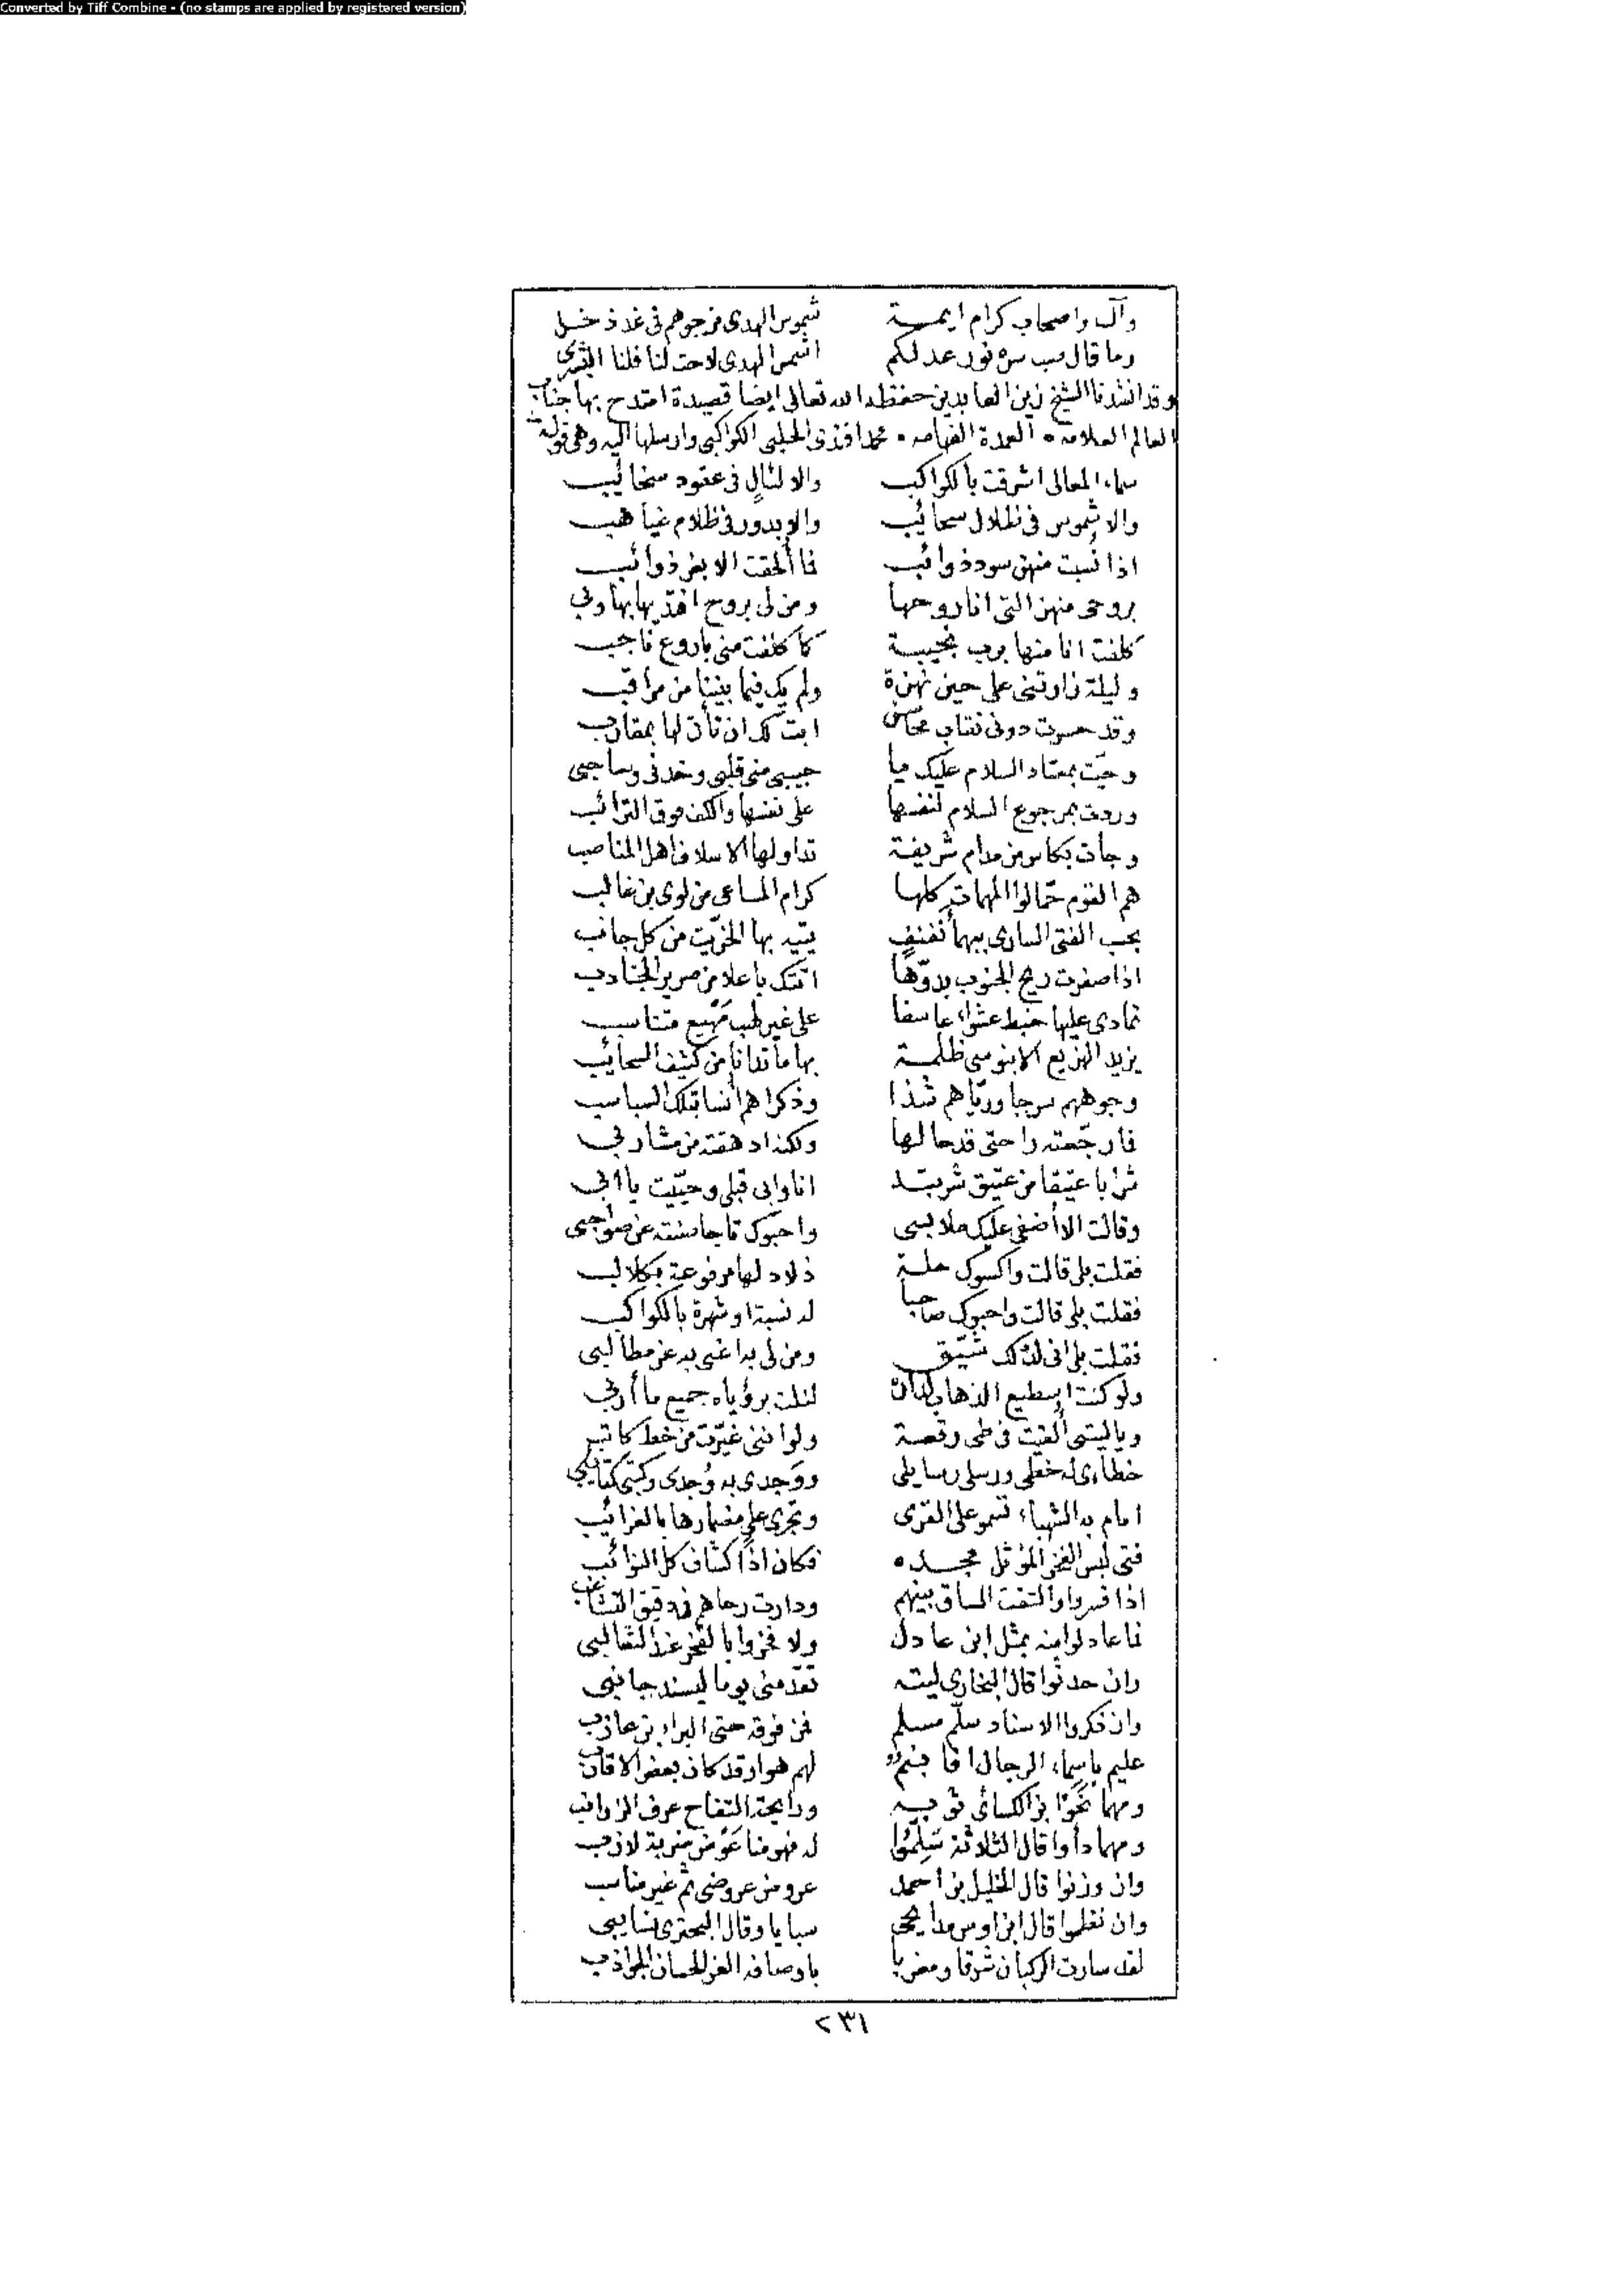 Converted by Tiff Combine - (no stamps are applied by registered version)
وآل واصحاب كرام ايمـة شموس الهدى نرجوهم فى غد ذخـل
وما قال صب سره نور عدلكم اشمس الهدى لاحت لنا فلنا البشرى
وقد انشدنا الشيخ زين العابدين حفظه الله تعالى ايضا قصيدة امتدح بها جناب
العالم العلامة • العمدة الفهامه • محمد افندى الحلبى الكواكبى وارسلها اليه وهى قوله
سماء المعالى اشرقت بالكواكب والا لئال فى عقود سخائب
والا شموس فى ظلال سحائب والا بدور فى ظلام غياهب
اذا نسبت منهن سود ذوائب فما ألحقت الا بغر ذوائب
بروحى منهن التى انا روحها ومن لى بروح افتديها بها وبى
كلفت انا منها برب نجيبة كما كلفت منى باروع ناجب
وليلة زارتنى على حين نهزة ولم يك فيما بيننا من مراقب
وقد حسرت دونى نقاب محاسن ابت كد ان تأت لها بمقارب
وحيت بمعتاد السلام عليك يا حبيبى منى قلبى وخدنى وصاحبى
وردت بمرجوع السلام لنفسها على نفسها والكف فوق الترائب
وجات بكاس من مدام شريفة تداولها الاسلاف اهل المناصب
هم القوم حمالوا المهمات كلها كرام المساعى من لوى بن غالب
بحب الفتى السارى بيهماء نفنف يتيه بها الخريت من كل جانب
اذا صفرت ريح الجنوب بدوها اتتك باعلا من صرير الجنادب
تمادى عليها خبط عشواء عاسفا على غير لهب مهيع متناسب
يزيد الهزيع الابنوسى ظلمـة بها ما تدانا من كثيف السحائب
وجوههم سرجا ورياهم شذا وذكراهم أنسا بتلك السباسب
فارجعته راحتى قدحا لها ولكن ادهقته من مشاربى
شرابا عتيقا من عتيق شربتـه انا وابى قبلى وحييت يا ابى
وقالت الا أضفى عليك ملابسى واحبوك تاجا صنته عن صواحبى
فقلت بلى قالت واكسوك حلـة ذلاذلها مرفوعة بكلالب
فقلت بلى قالت واحبوك صاحبا له نسبة او شهرة بالكواكب
فقلت بلى انى لذلك شيق ومن لى بداعى به عن مطالبى
ولو كنت اسطيع الذهاب لداره لنلت برؤياه جميع مأاربى
ويا ليتنى ألفيت فى طى رقعـة ولو اننى غيرت من خط كاتب
خطاءى له خطى ورسلى رسايلى ووجدى به وجدى وكتبى كتايبى
امام به الشهباء تسمو على القرى وتجرى على مضمارها بالغرائب
فتى لبس الفخر المؤثل مجـده فكان اذا كشاف كل النوائب
اذا فسروا والتفت الساق بينهم ودارت رحاهم فى دقيق التشاغب
فما عادلوا منه بمثل ابن عادل ولا فخروا بالفخر عند الثعالبى
وان حدثوا قال البخارى ليته تقدمنى يوما ليسند جانبى
وان ذكروا الاسناد سلم مسلم فمن فوقه حتى البراء بن عازب
عليم باسماء الرجال
لهم هو او قد كان بعض الاقارب
ومهما نحوا بز الكسائى ثوبـه ورايحة التفاح عرف الزرانب
ومهما دأوا قال الثلاثة سلموا له فهو منا عوض ضربة لازب
وان وزنوا قال الخليل بن احمد عروض عروضى ثم غير مناسب
وان نظموا قال ابن اوس مدايحى سبايا وقال البحترى نسايبى
لقد سارت الركبان شرقا ومغربا باوصافه الغر الحسان الجواذب
٢٣١